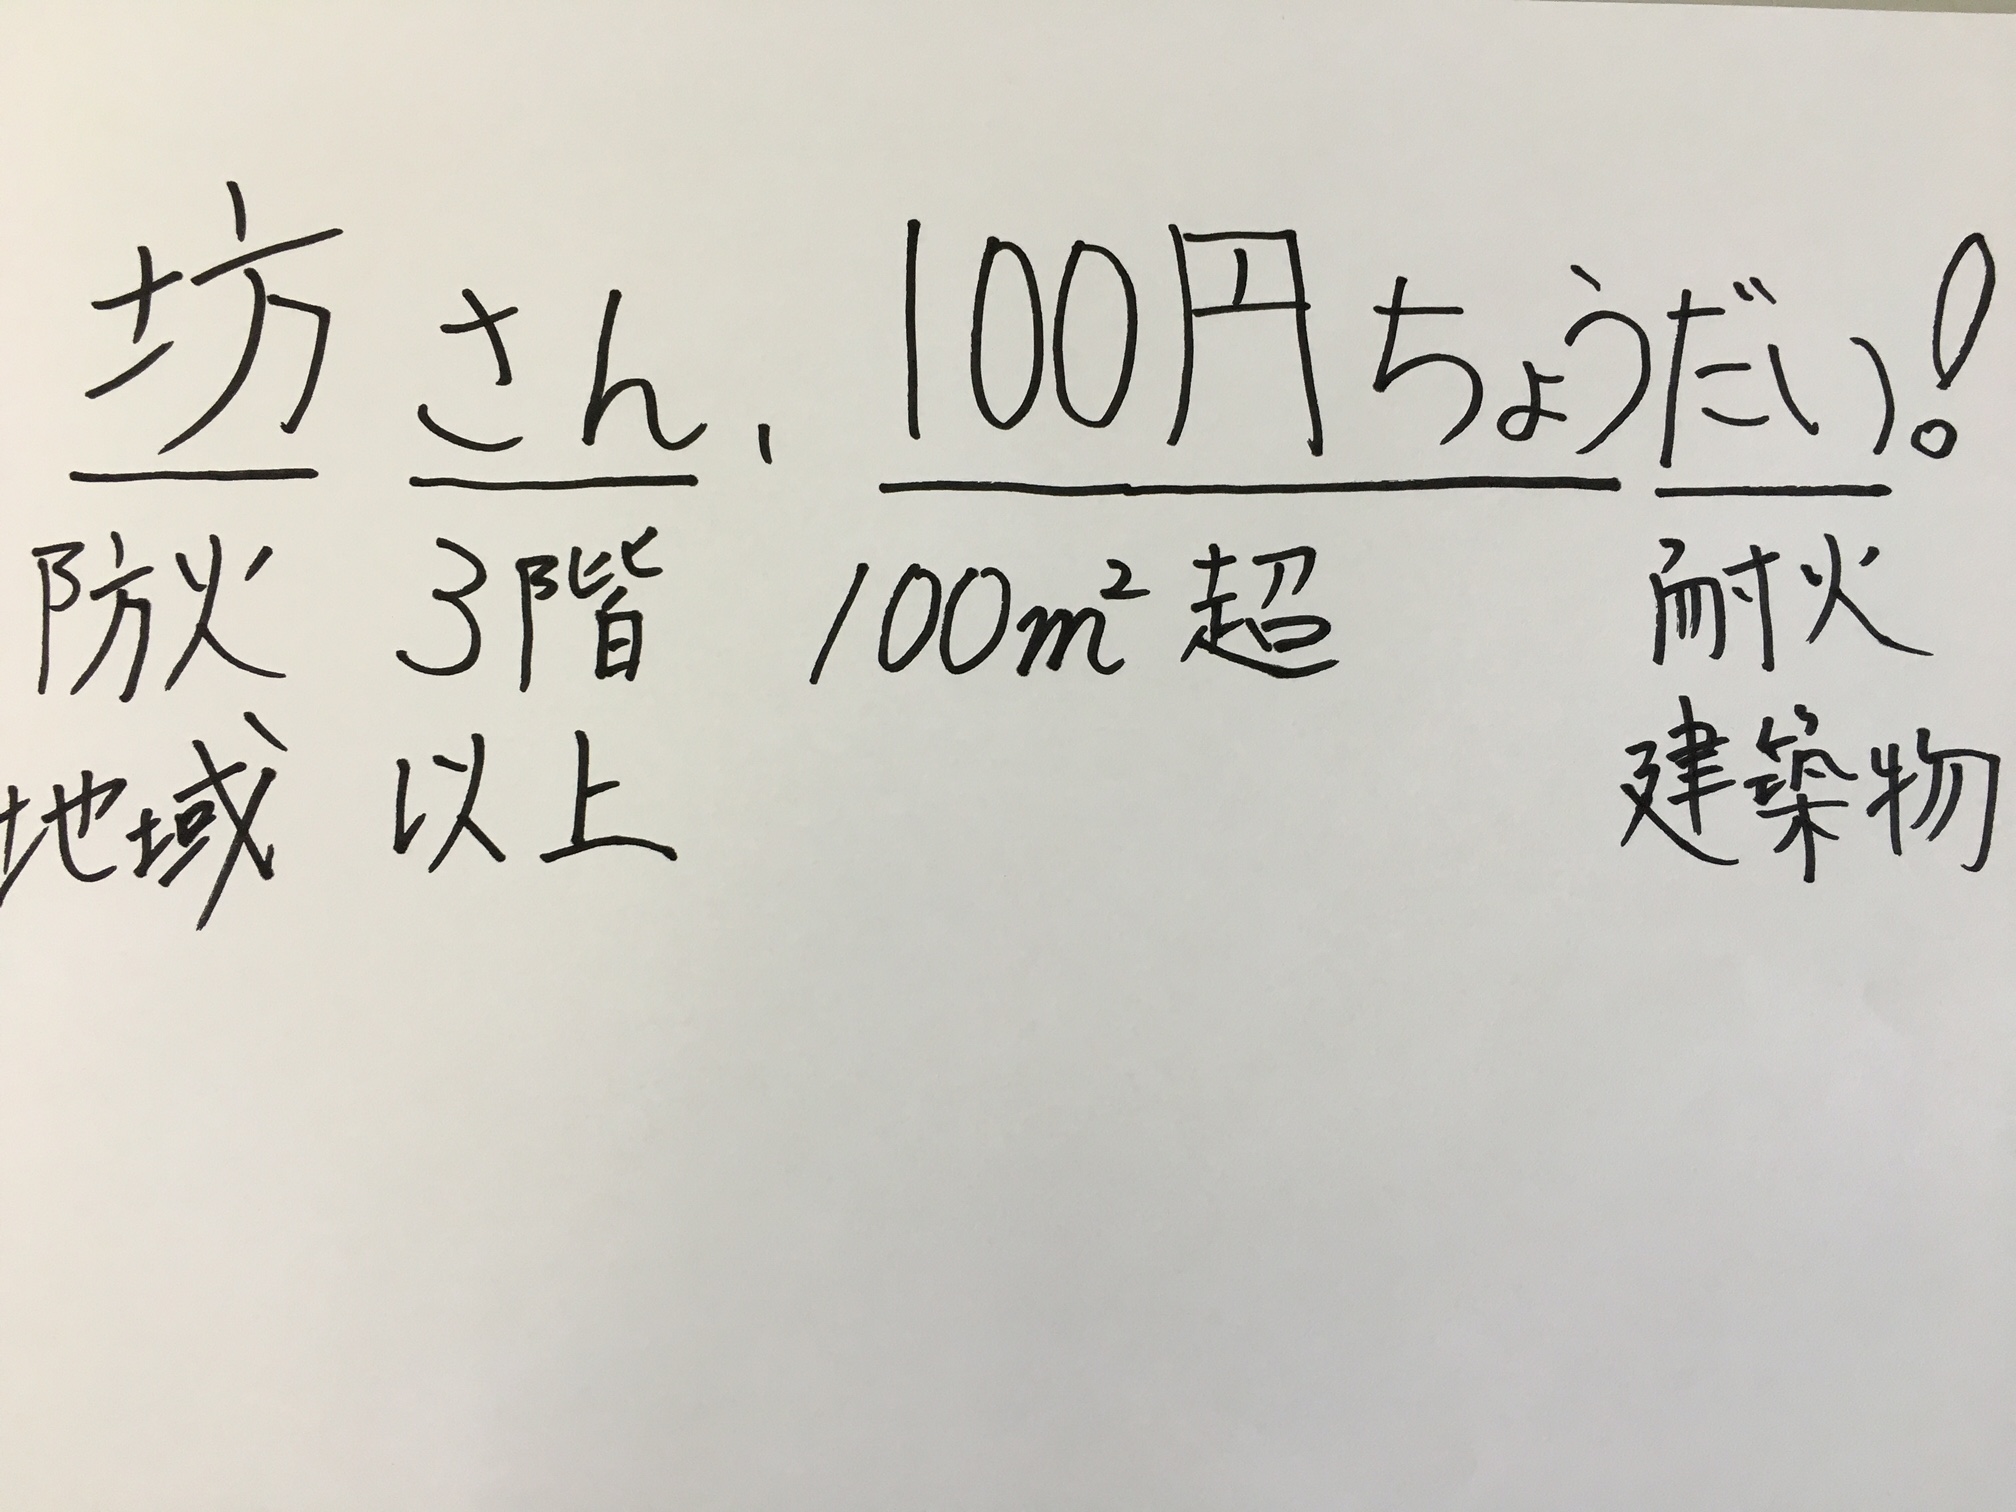 坊さん、100円ちょうだい!
防火 3階 100m² 超 耐火
地域 以上 建築物